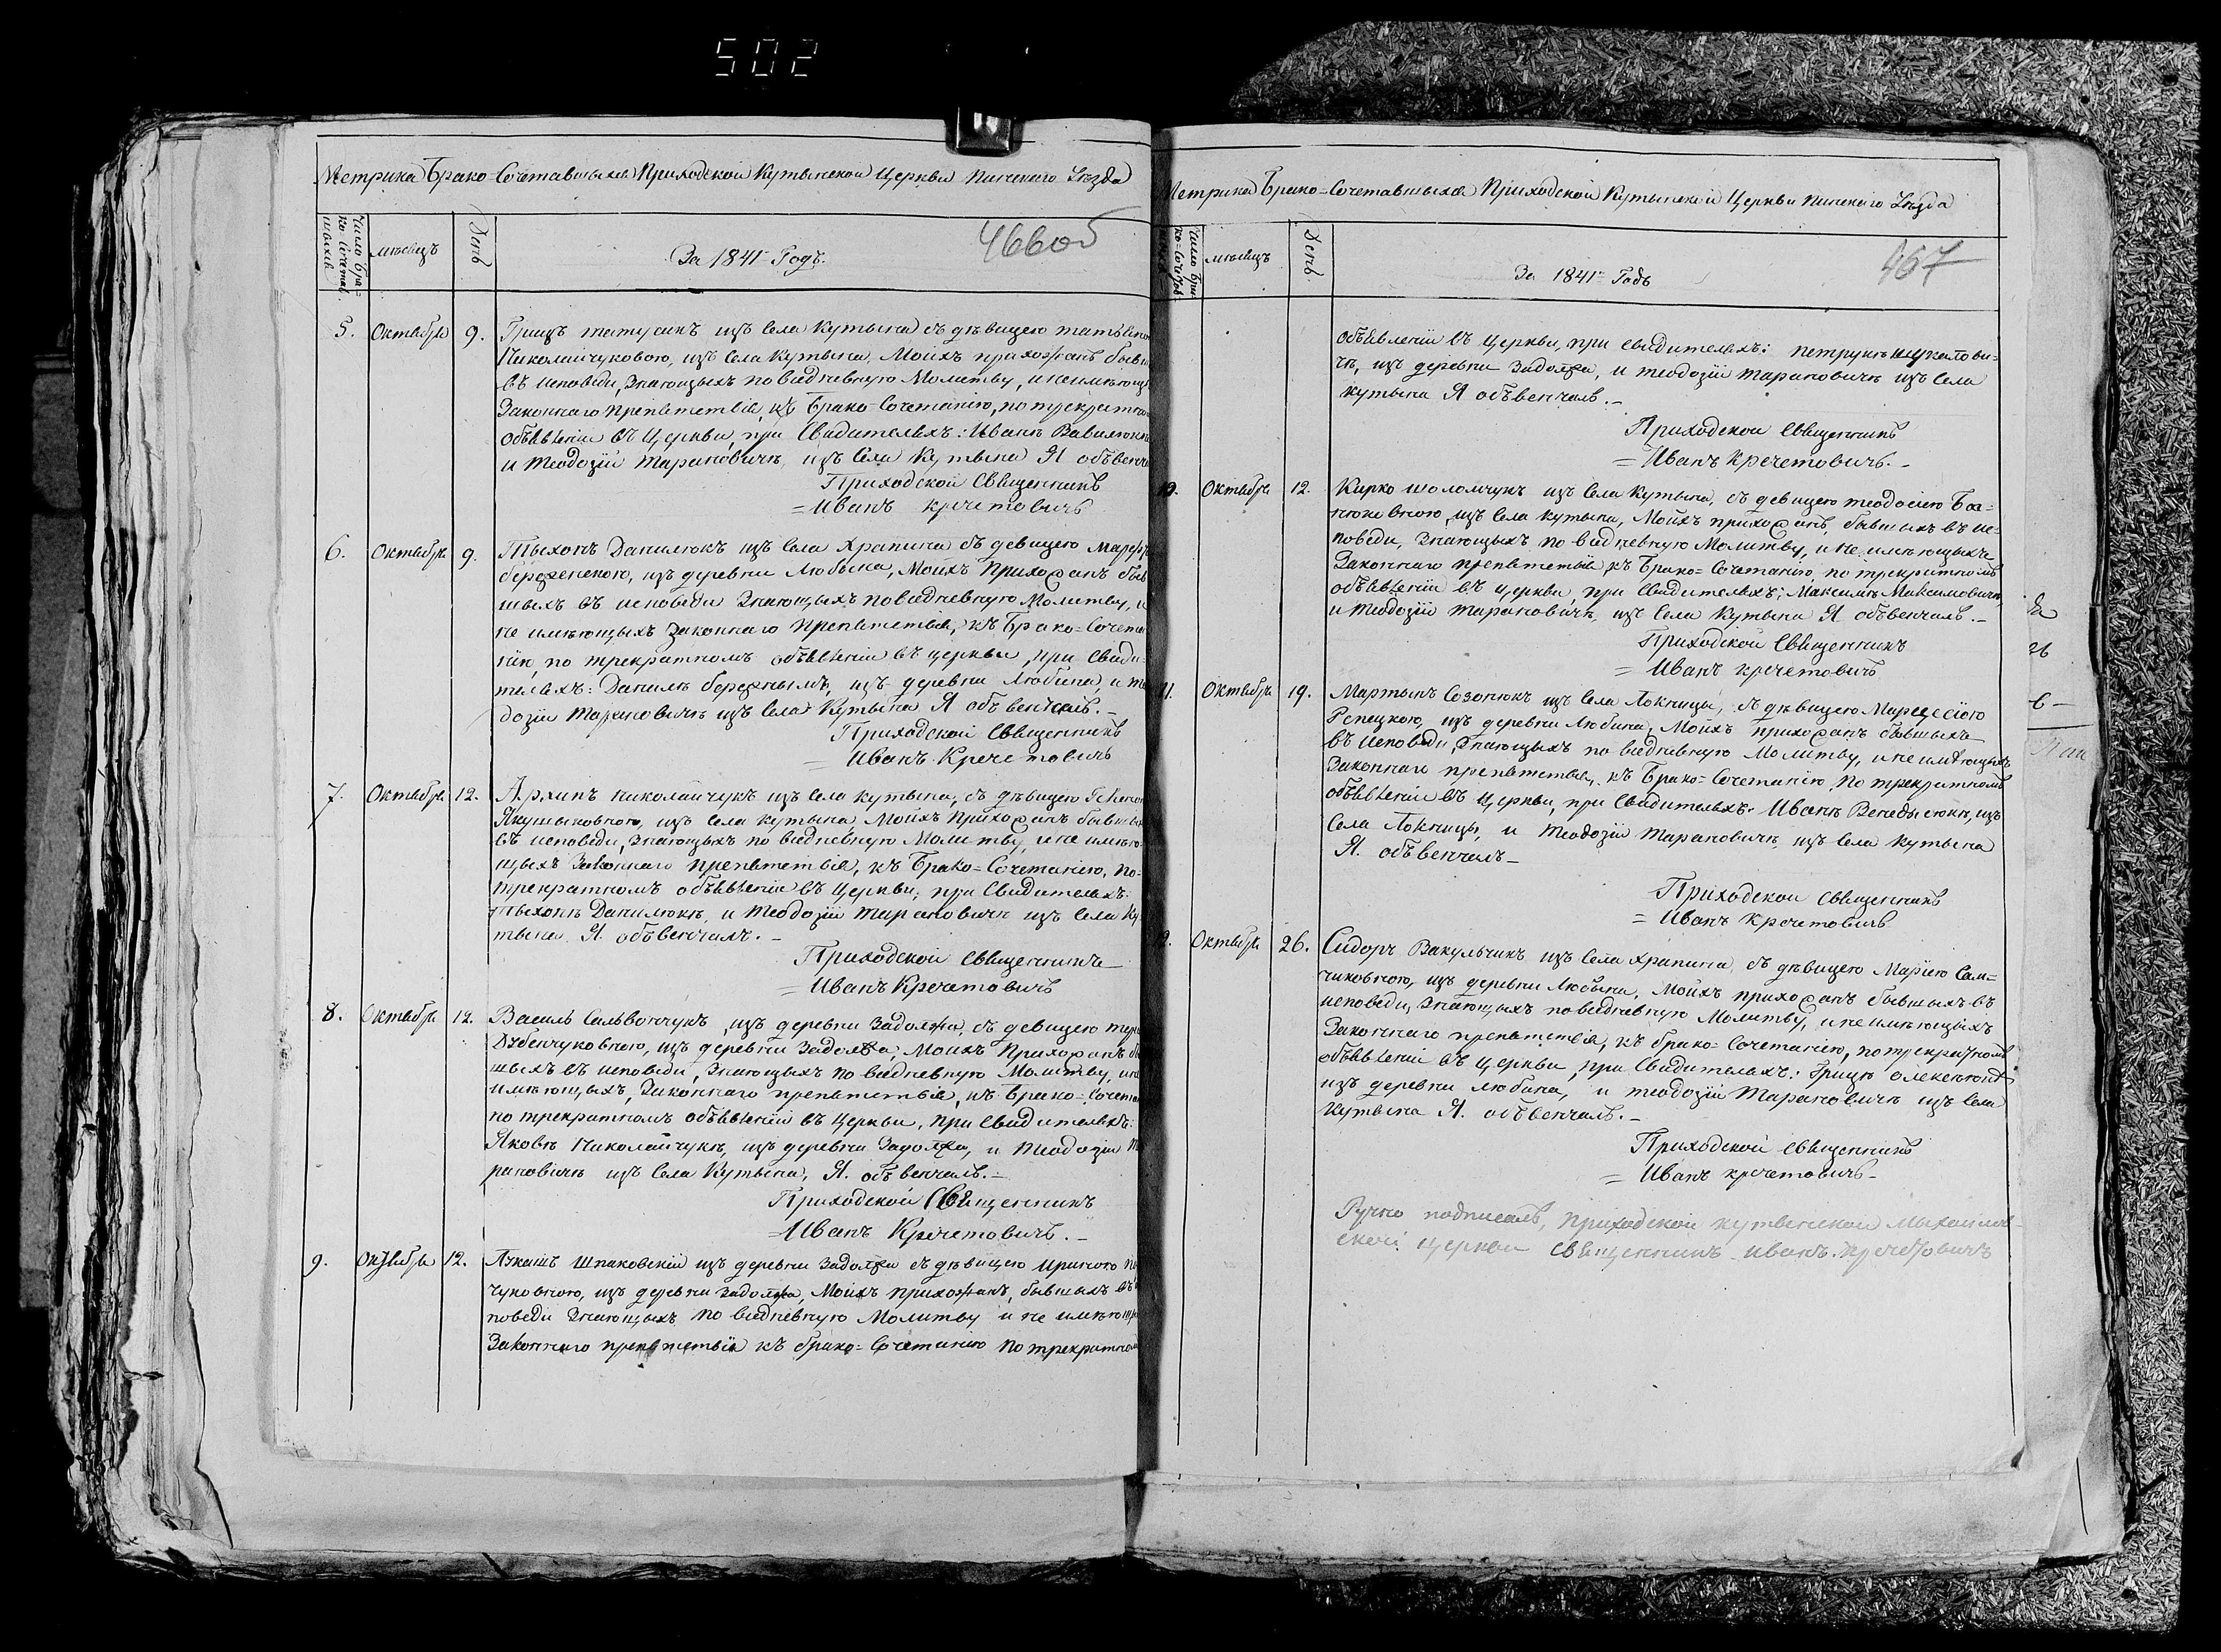 502
Метрика Брако-Сочетавшихся Приходской Кутынской Церкви Пинского Уѣзда
Число Бра=
ко Сочетав=
шихся
мѣсяцъ
День
За 1841 Годъ.
466об
5. Октября 9. Грицъ изъ села Кутына съ дѣвицею
Николайчуковою, изъ села Кутына, Моихъ прихожанъ
въ исповеди, Знающыхъ повседневную Молитву,
Законнаго препятствія, къ Брако-Сочетанію, по
объявленіи въ Церкви, при Свидетеляхъ: Иванѣ
и Теодозіи Тарановичѣ, изъ села Кутына Я
Приходской Священникъ
=Иванъ кречетовичъ
6. Октября 9. Тыхонъ Данилюкъ изъ села Храпина съ девицею
бережнскою, изъ деревни Любыка, Моихъ Прихожанъ быв
шыхъ въ исповеди Знающыхъ повседневную Молитву, и
не имѣющыхъ Законнаго Препятствія, къ Брако=Сочета
нію, по трекратномъ объявленіи въ церкви, при Свиде
теляхъ: Данилѣ бережнымъ, изъ деревни Любина, и те
дозіи Тарановичѣ изъ села Кутына Я объвенчалъ.-
Приходской Священникъ
= Иванъ Кречетовичъ
7. Октября 12. Архипъ Николайчукъ изъ села Кутына, съ дѣвицею
изъ села Кутына Моихъ Прихожанъ
въ исповеди, Знающыхъ повседневную Молитву, и не имѣю
щыхъ Законнаго препятствія, къ Брако=Сочетанію, по=
трекратномъ объявленіи въ Церкви, при Свидетеляхъ:
Тыхонѣ Данилюкѣ, и Теодозіи Тарановичѣ изъ села Ку
тына Я. объвенчалъ.-
Приходской Священникъ
=Иванъ Кречетовичъ
8. Октября 12. Василь изъ деревни Задолжа, съ девицею
изъ деревни Задолжа, Моихъ Прихожанъ
шыхъ въ исповеди, Знающыхъ повседневную Молитву,
имѣющыхъ, Законнаго препятствія, къ Брако=
по трекратномъ объявленіи въ Церкви, при Свидетеляхъ:
Яковѣ Николайчукѣ, изъ деревни Задолжа, и Теодозіи Та
рановичѣ изъ села Кутына, Я. объвенчалъ.-
Приходской Священникъ
=Иванъ Кречетовичъ.-
9. Октября 12. Лукашъ Шпаковскій изъ деревни Задолжа съ дѣвицею Ириною
чуковною, изъ деревни Задолжа, Моихъ прихожанъ, бывшыхъ въ
поведи Знающыхъ повседневную Молитву и не
Законнаго препятствія къ брако=Сочетанію по
Метрика Брако=Сочетавшихся Приходской Кутынской Церкви Пинского Уѣзда
Число Бра
ко=Сочетав
мѣсяцъ
День.
За 1841 Годъ
467
объявленіи въ Церкви, при Свидетеляхъ: петрукѣ
чѣ, изъ деревни Задолжа, и теодозіи Тарановичѣ изъ села
кутына Я объвенчалъ.-
Приходской Священникъ
=Иванъ Кречетовичъ.-
10. Октября 12. Кирко шоломчукъ изъ села Кутына, съ девицею теодосіею
изъ села Кутына, Моихъ прихожанъ, бывшыхъ въ ис=
поведи, Знающыхъ повседневную Молитву, и не имѣющыхъ
Законнаго препятствія, къ Брако=Сочетанію, по трекратномъ
объявленіи въ церкви, при Свидетеляхъ: Максимѣ Максимовичѣ,
и Теодозіи Тарановичѣ, изъ села Кутына Я объвенчалъ.-
Приходской Священникъ
= Иванъ кречетовичъ
11. Октября 19. Мартынъ Созонюкъ изъ села Локницы, съ дѣвицею
Репецкою, изъ деревни Любина, Моихъ прихожанъ бывшыхъ
въ исповеди, Знающыхъ повседневную Молитву, и не имѣющыхъ
Законнаго препятствія, къ Брако=Сочетанію, по трекратномъ
объявленіи въ Церкви, при Свидетеляхъ: Иванѣ изъ
села Локницы, и Теодозіи Тарановичѣ, изъ села Кутына
Я. объвенчалъ-
Приходской Священникъ
= Иванъ Кречетовичъ
12. Октября 26. Сидоръ Вакульчикъ изъ села Храпина съ дѣвицею Маріею Сам=
чиковною, изъ деревни Любина, Моихъ прихожанъ бывшыхъ въ
исповеди, Знающыхъ повседневную Молитву, и не имѣющыхъ
Законнаго препятствія, къ брако=Сочетанію, по трекратномъ
объявленіи въ Церкви, при Свидетеляхъ: Грицѣ
изъ деревни любина, и теодозіи Тарановичѣ изъ села
Кутына Я. объвенчалъ.-
Приходской Священникъ
= Иванъ кречетовичъ-
Ручно подписалъ, приходской кутынской Михайлов-
ской церкви священникъ иванъ кречетовичъ